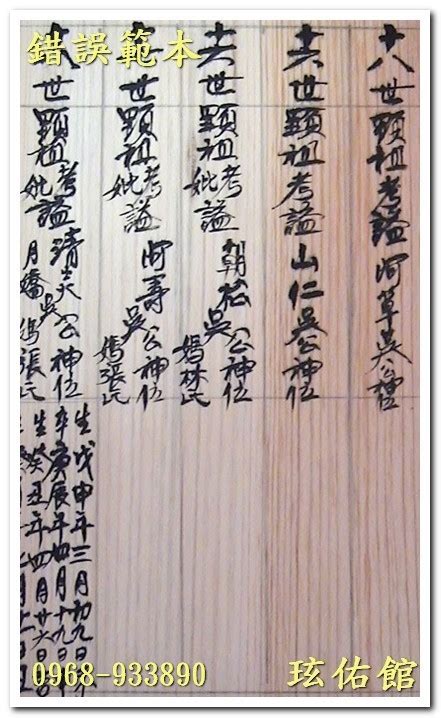 錯誤範本
十八世顯祖考諡阿草吳公神位
十六世顯祖考諡山仁吳公神位
十六世顯祖考妣諡朝松吳公神位媽林氏
世顯祖考妣諡阿壽吳公神位媽張氏
八世顯祖考妣諡清炎公神位月嬌媽張氏
生戊申年三月初九日
卒庚辰年四月十九日
生癸丑年四月廿六日
0968-933890
玹佑館